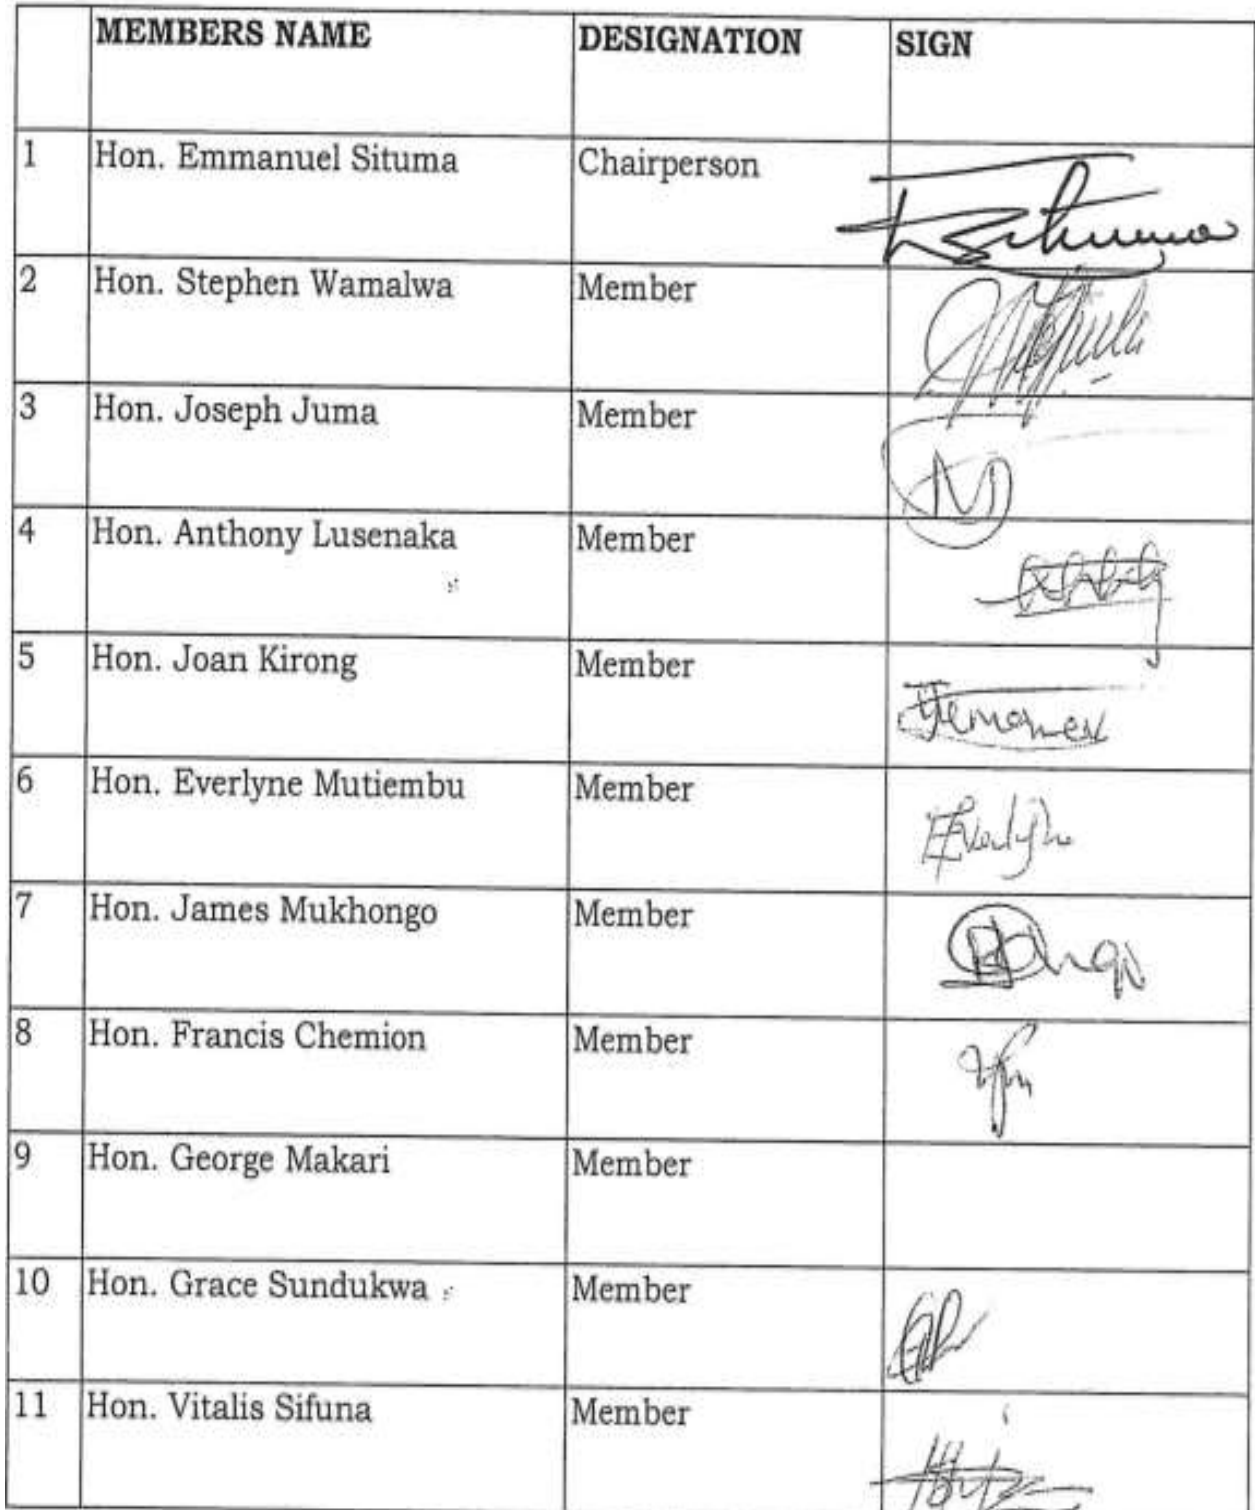 MEMBERS NAME DESIGNATION SIGN
1 Hon. Emmanuel Situma Chairperson
2 Hon. Stephen Wamalwa Member
3 Hon. Joseph Juma Member
4 Hon. Anthony Lusenaka Member
5 Hon. Joan Kirong Member
6 Hon. Everlyne Mutiembu Member Everlyne
7 Hon. James Mukhongo Member
8 Hon. Francis Chemion Member
9 Hon. George Makari Member
10 Hon. Grace Sundukwa Member
11 Hon. Vitalis Sifuna Member